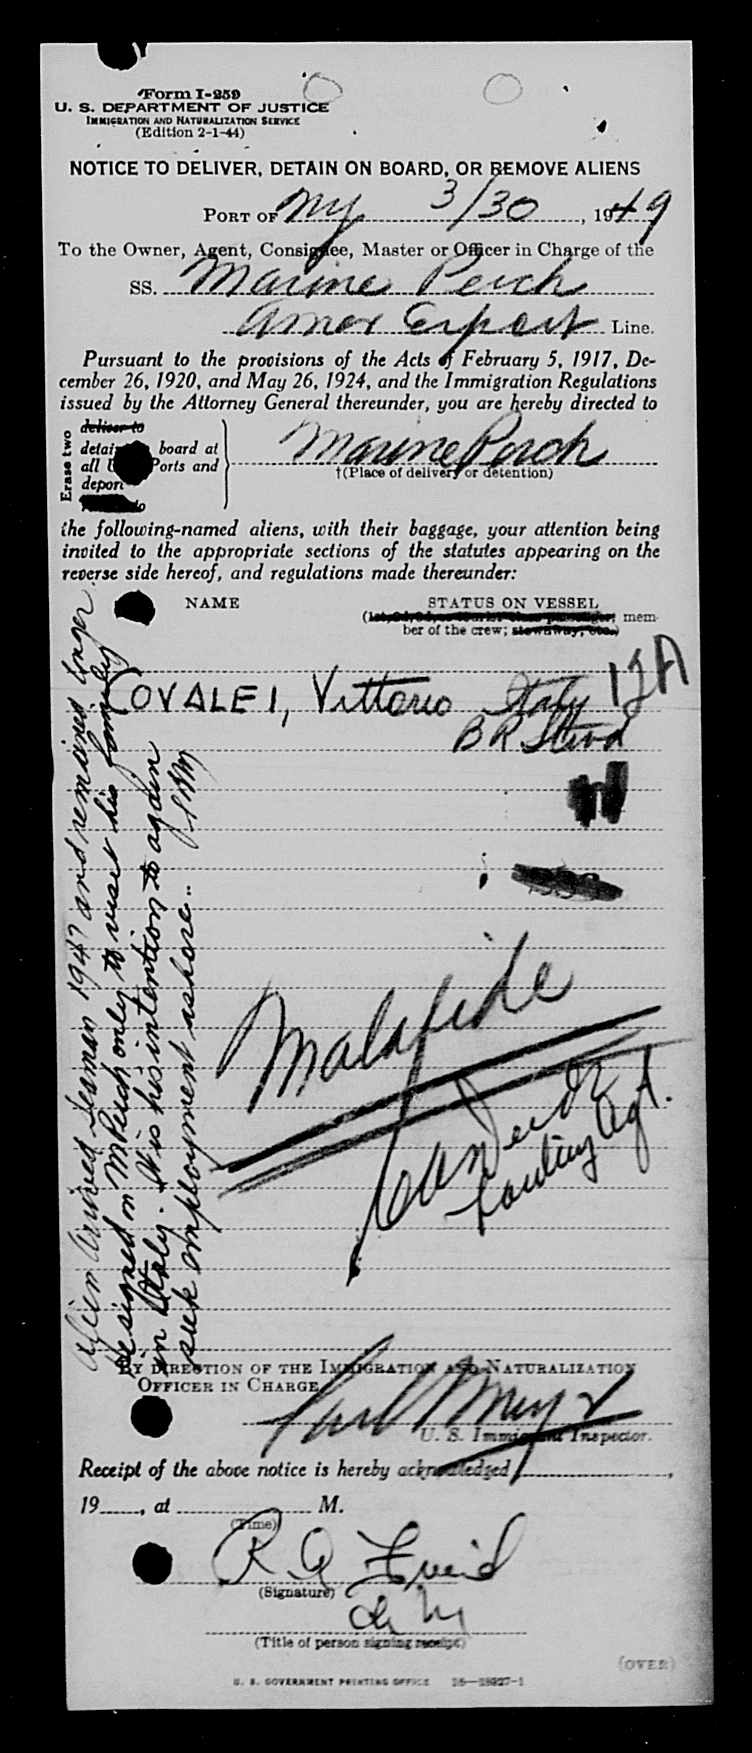 Form I-259
U. S. DEPARTMENT OF JUSTICE
IMMIGRATION AND NATURALIZATION SERVICE
(Edition 2-1-44)
NOTICE TO DELIVER, DETAIN ON BOARD, OR REMOVE ALIENS
PORT OF Ny 3/30, 1949
To the Owner, Agent, Consignee, Master or Officer in Charge of the
SS. Marine Perch
Amer Export Line.
Pursuant to the provisions of the Acts of February 5, 1917, De-
cember 26, 1920, and May 26, 1924, and the Immigration Regulations
issued by the Attorney General thereunder, you are hereby directed to
Erase two
deliver to
detain board at
all U Ports and
deport
Marine Perch
†(Place of delivery or detention)
the following-named aliens, with their baggage, your attention being
invited to the appropriate sections of the statutes appearing on the
reverse side hereof, and regulations made thereunder:
NAME STATUS ON VESSEL
(1st, 2d, 3d, or tourist class passenger; mem-
ber of the crew; stowaway, etc.)
COVALEI, Vittorio Italy
B R Stwd
Malafide
Landing Agt.
Alien arrived seaman 1947 and remained longer.
Resigned on M Perch only to visit his family
in Italy. It is his intention to again
seek employment ashore..
BY DIRECTION OF THE IMMIGRATION AND NATURALIZATION
OFFICER IN CHARGE
U. S. Immigrant Inspector.
Receipt of the above notice is hereby acknowledged
19, at M.
(Time)
R A
(Signature)
(Title of person signing receipt)
(OVER)
U. S. GOVERNMENT PRINTING OFFICE 16—18927-1